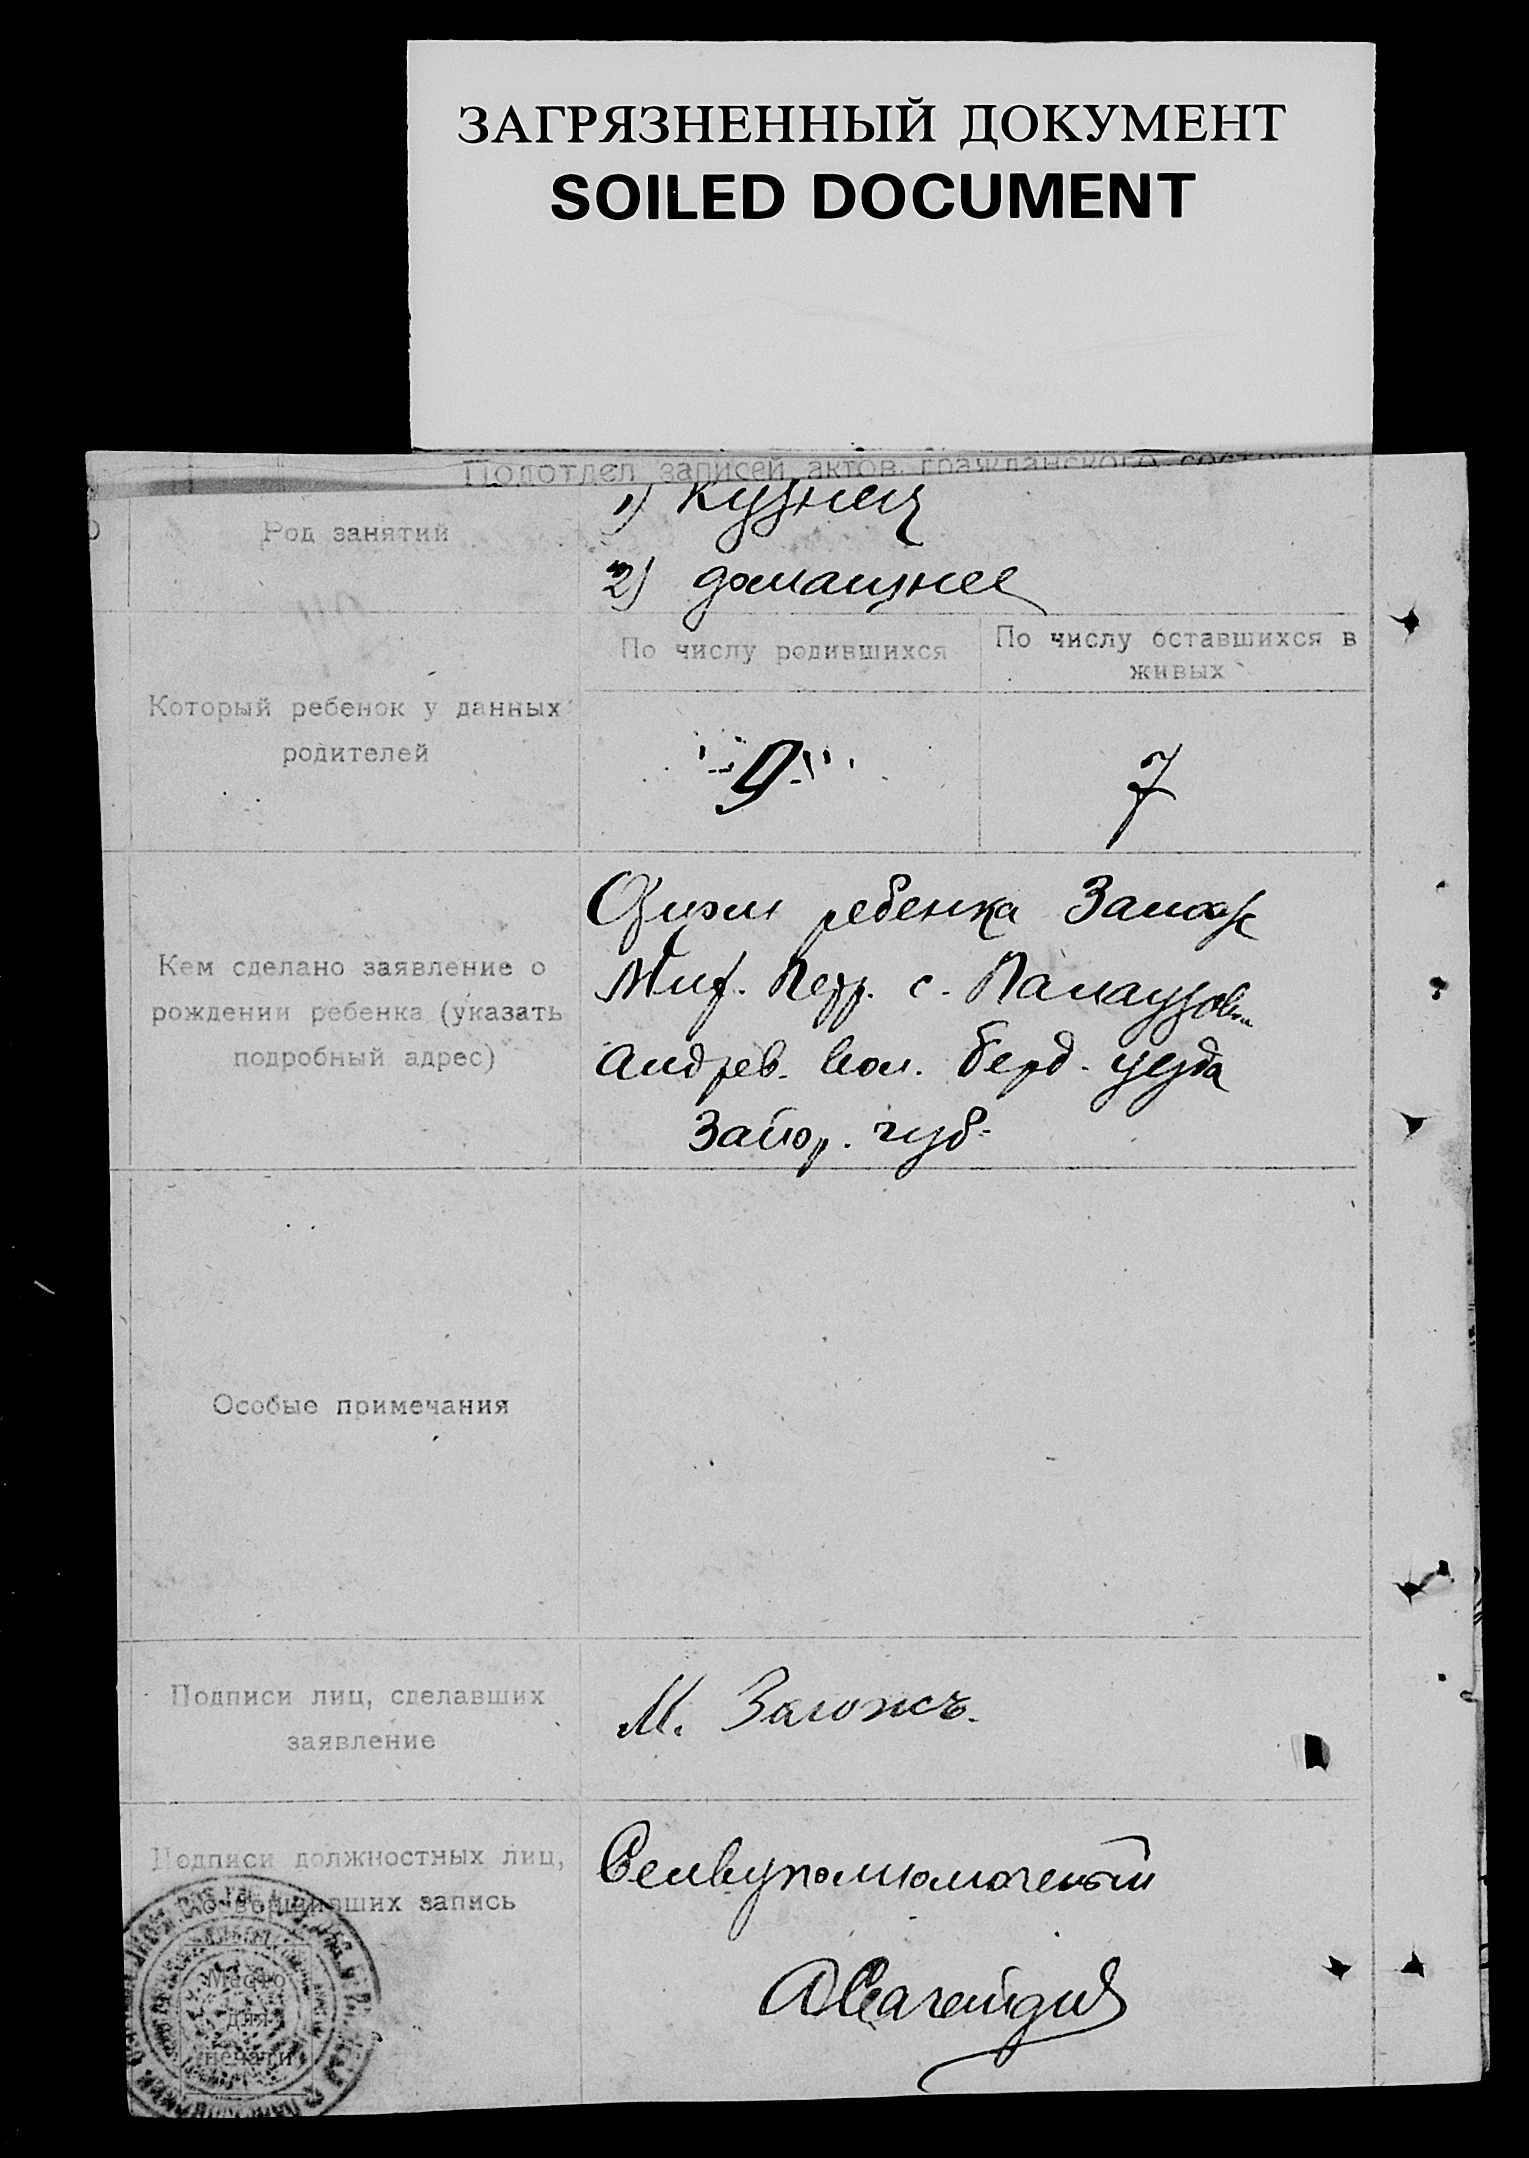 ЗАГРЯЗНЕННЫЙ ДОКУМЕНТ
SOILED DOCUMENT
Подотдел записей актов гражданского
Род занятий
1) Кузнец
2) домашнее
Который ребенок у данных родителей
По числу родившихся
По числу оставшихся в живых
9
7
Кем сделано заявление о
рождении ребенка (указать
подробный адрес)
ребенка
с.
Андрев. вол. Берд. уезда
Запор. губ.
Особые примечания
Подписи лиц, сделавших
заявление
М.
Подписи должностных лиц,
совершивших запись
Селвуполномоченый
Место
для
печати